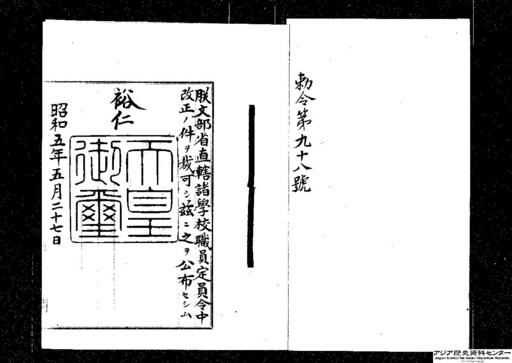 勅令第九十八號
朕文部省直轄諸學校職員定員令中
改正ノ件ヲ裁可シ茲ニ之ヲ公布セシム
裕仁
天皇
御璽
昭和五年五月二十七日
アジア歴史資料センター
Japan Center for Asian Historical Records